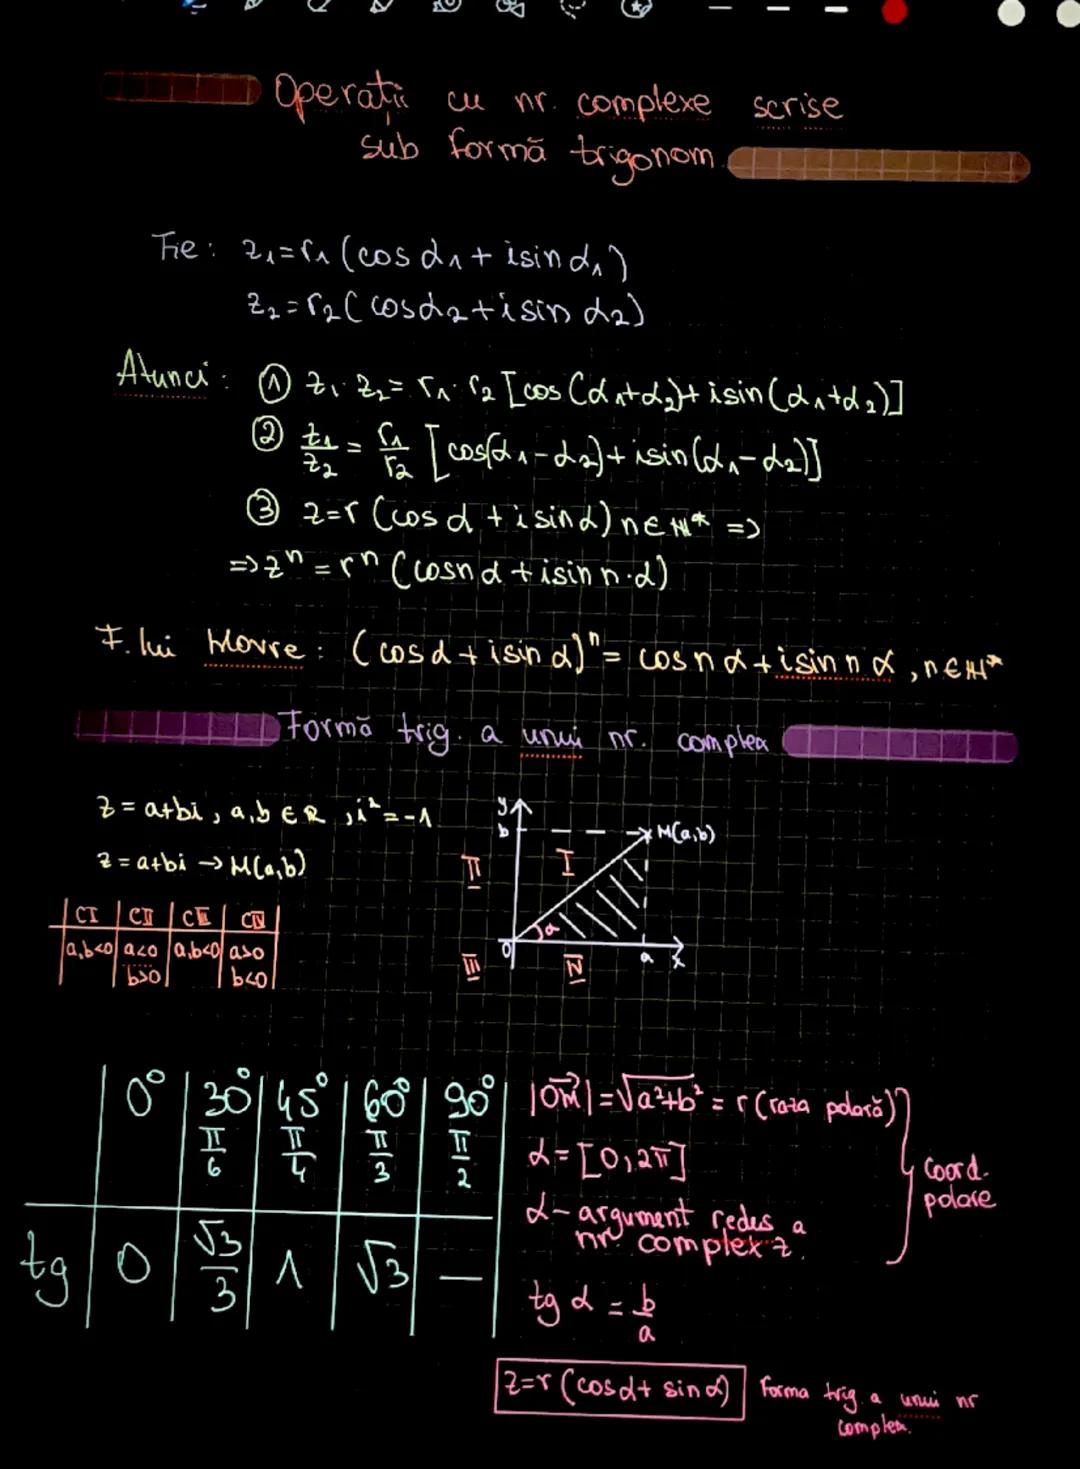 Operații cu nr. complexe scrise
sub formă trigonom.
Fie: z₁=r₁(cos α₁+ i sin α₁)
z₂=r₂(cos α₂+i sin α₂)
Atunci: ① z₁·z₂= r₁·r₂ [cos(α₁+α₂)+ i sin(α₁+α₂)]
② z₁/z₂ = r₁/r₂ [cos(α₁-α₂)+ i sin(α₁-α₂)]
③ z=r (cos α + i sin α) n∈ℕ* =>
=> zⁿ = rⁿ (cos n α + i sin n·α)
F. lui Movre: (cos α + i sin α)ⁿ= cos n α + i sin n α, n∈ℕ*
Formă trig. a unui nr. complex
z = a+bi, a,b ∈ ℝ, i²=-1
z = a+bi → M(a,b)
y
b
M(a,b)
II
I
α
0
a
x
III
IV
CI | CII | CIII | CIV
a,b<0 | a<0 | a,b<0 | a>0
b>0 | b<0
0° | 30° | 45° | 60° | 90°
π/6 | π/4 | π/3 | π/2
tg | 0 | √3/3 | 1 | √3 | —
|OM| = √a²+b² = r (raza polară)
α = [0,2π]
α - argument redus a
nr. complex z.
Coord.
polare
tg α = b/a
z=r (cos α + sin α) Forma trig. a unui nr
complex.